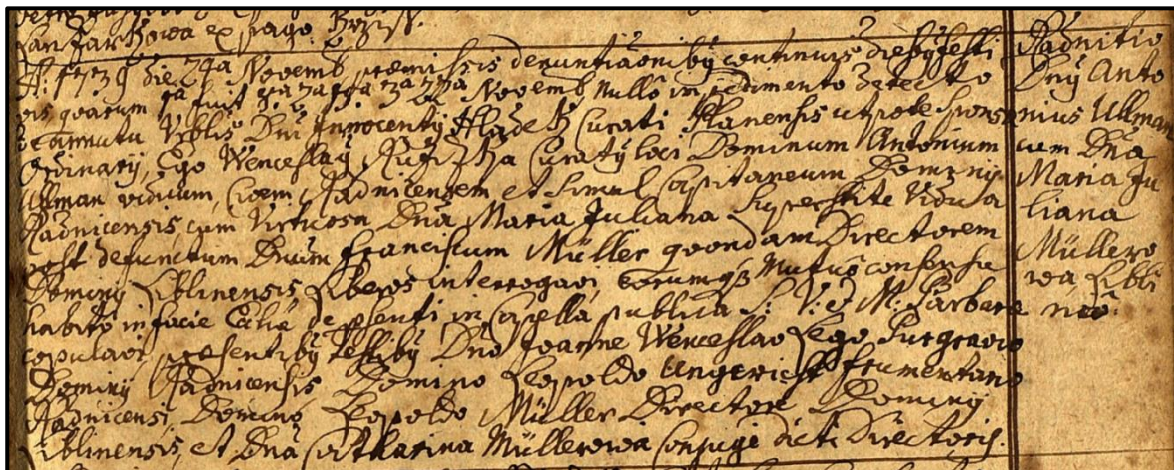 Lanzartzowa ex pago
A: 1739 die 24ta Novemb. praemissis denuntiaonibq continuis diebq festi
vis quarum 1ma fuit Novemb. nullo impedimento detecto
Dni Innocentij Curati Planensis utpote sponsi
ordinarij, Ego Wenceslaq Curatq loci Dominum Antonium
Ullman viduum, Radnicensem et simul Capitaneum Dominij
Radnicensis, cum Virtuosa Dna Maria Juliana superstite vidua
post defunctum Dnum Franciscum Müller quondam Directorem
Dominij Liblinensis, Liberos interrogavi, eorumqz Mutuo consensu
habito in facie Eccliae de psenti in Capella publica S: V: et M: Barbarae
copulavi, praesentibq testibq Dno Joanne Wenceslao Lego Purgravio
Dominij Radnicensis Domino Leopoldo Ungericht frumentario
Radnicensi Domino Leopoldo Müller Directore Dominij
Liblinensis, et Dna Catharina Müllerowa Conjuge dicti Directoris.
Radnitio
Dnq Anto
nius Ullman
cum Dna
Maria Ju
liana
Müllero
wa Libli